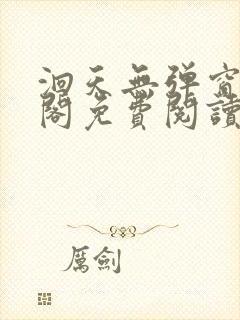 洄天無弹窗
阁免費閱讀
厲劍